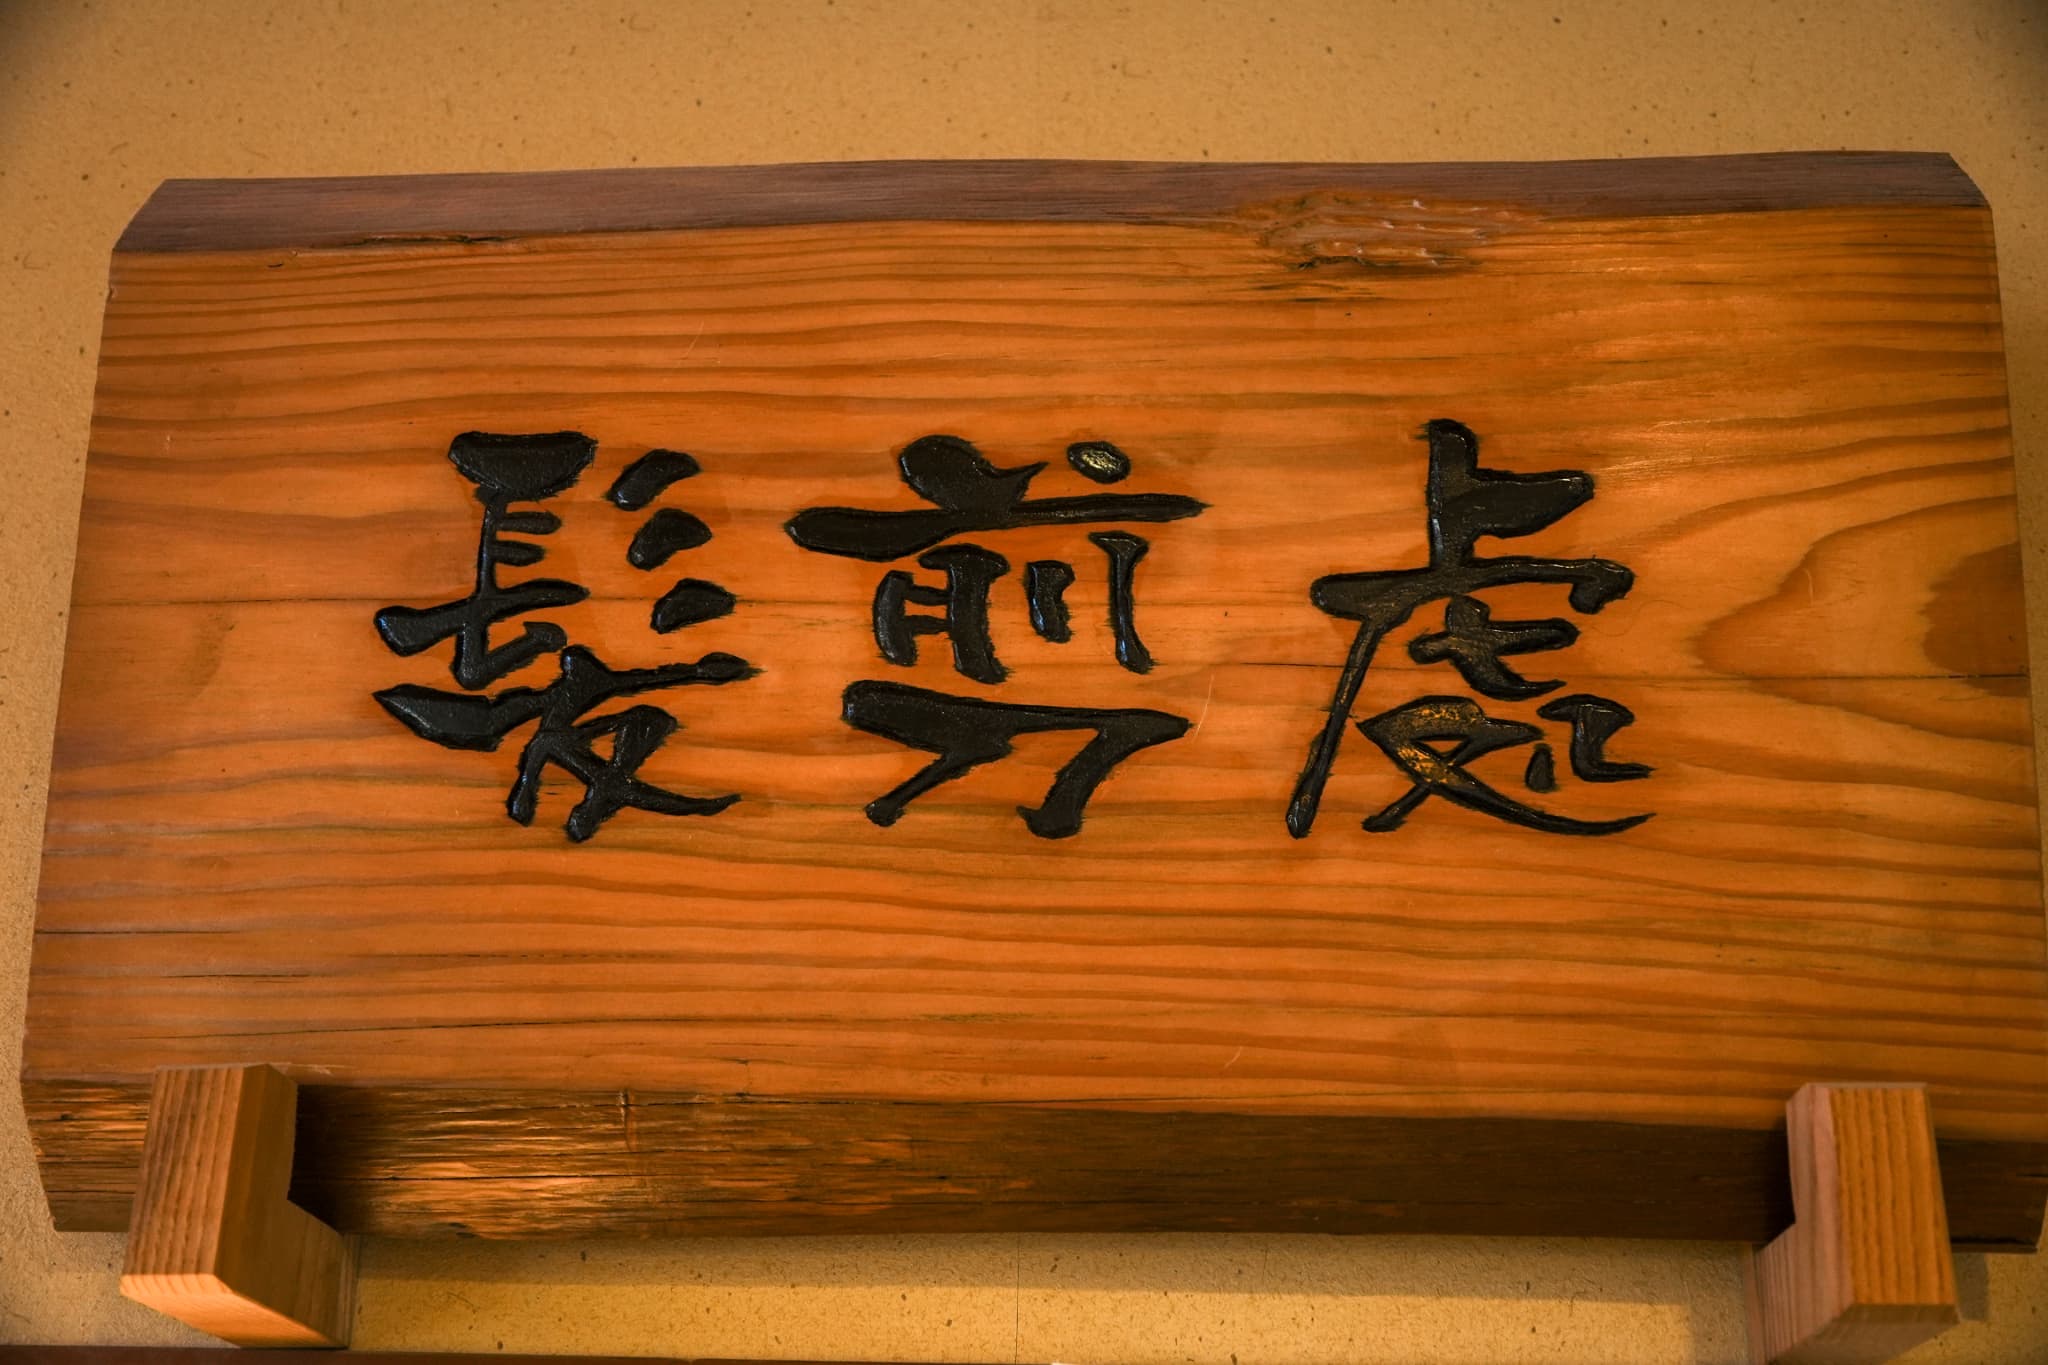 髪剪處